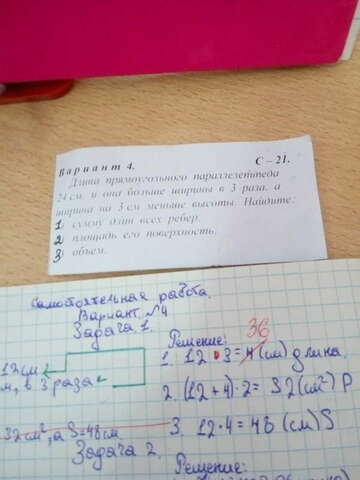 Вариант 4. С – 21.
Длина прямоугольного параллелепипеда
24 см. и она больше ширины в 3 раза, а
ширина на 3 см меньше высоты. Найдите:
1 сумму длин всех ребер.
2 площадь его поверхность.
3 объем.
Самостоятельная работа.
Вариант №4
Задача 1.
Решение: 36
12см 1. 12 • 3 = 4 (см) длина.
м, в 3 раза
2. (12+4)·2= 32(см²) P
32 см², а S=48см 3. 12·4=48 (см) S
Задача 2.
Решение: